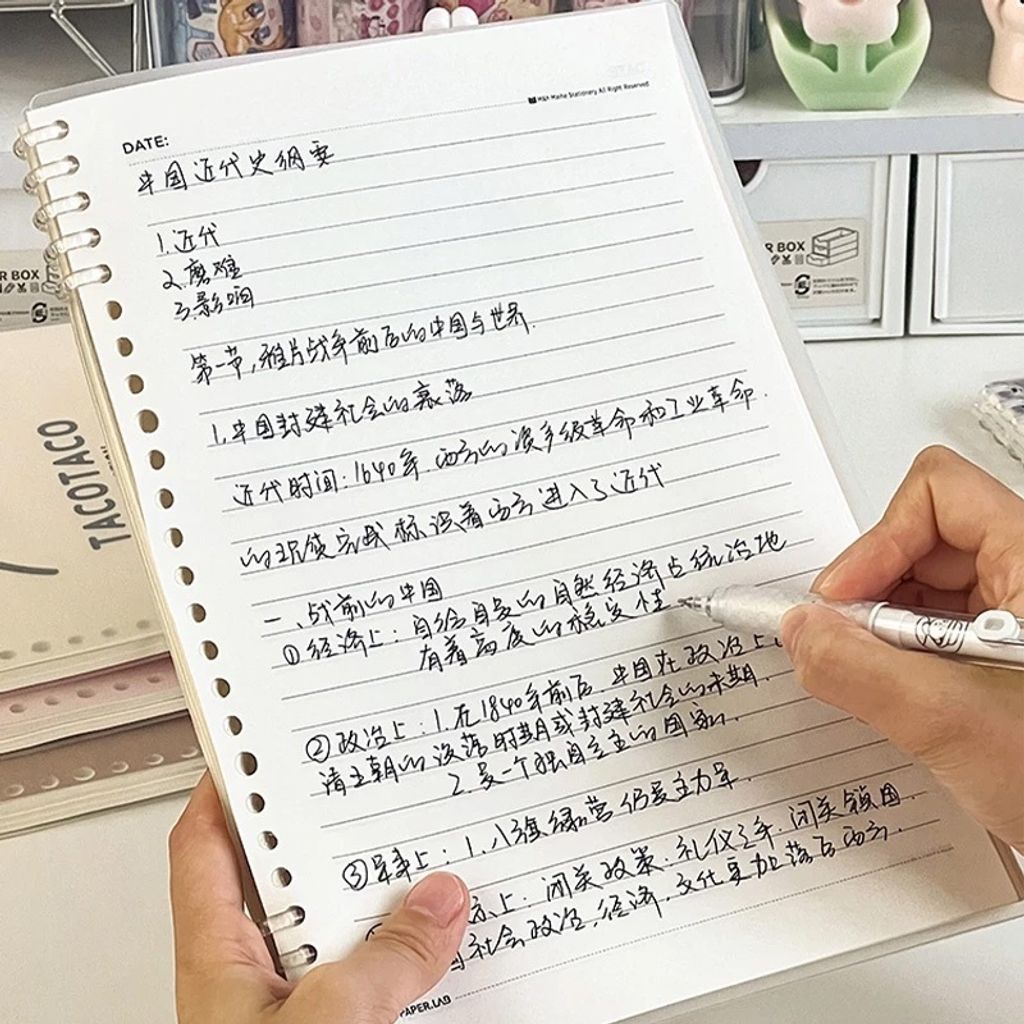 M&H Maite Stationery All Right Reserved
DATE:
中国近代史纲要
1.近代
2.磨难
3.影响
第一节,鸦片战争前后的中国与世界.
1.中国封建社会的衰落
近代时间:1640年.西方的资产级革命和工业革命.
的现续完成标识着西方进入了近代
一、战前的中国
①经济上:自给自足的自然经济占统治地
有着高度的稳定性
②政治上:1.在1840年前后.中国在政治上
清王朝的没落时期或封建社会的末期.
2.是一个独自主主的国家.
③军事上:1.八旗绿营仍是主力军.
上:闭关政策.礼仪之争.闭关锁国.
国社会政治,经济,文化更加落后西方.
PAPER.LAB
TACOTACO
R BOX
R BOX